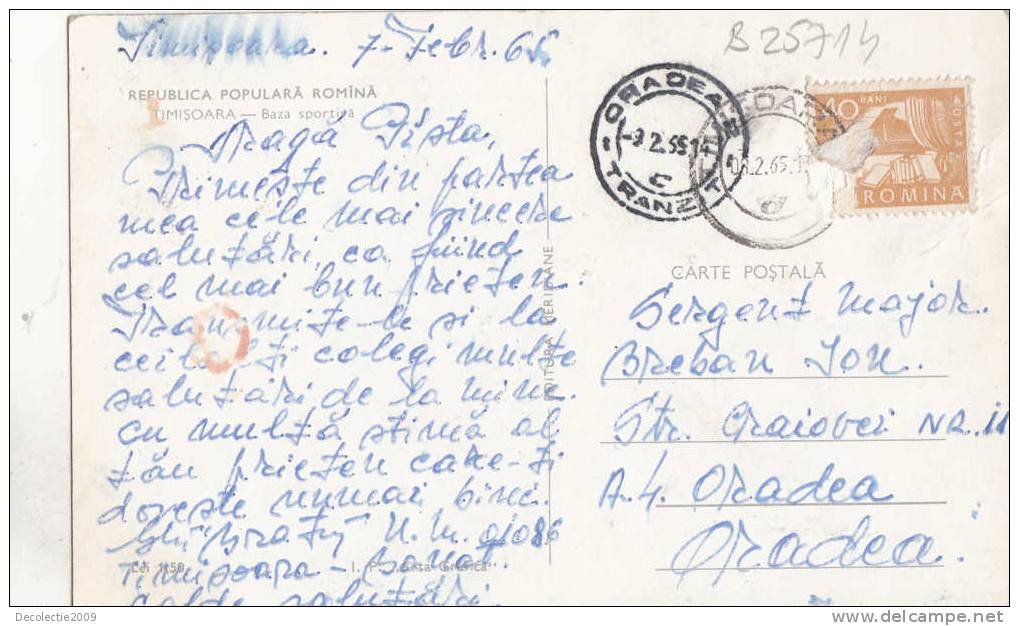 B 25714
Timișoara. 7-Febr. 65
REPUBLICA POPULARĂ ROMÎNĂ
TIMIȘOARA — Baza sportivă
Dragă Pista,
Primește din partea
mea cele mai sincere
salutări, ca fiind
cel mai bun prieten.
Transmite-le și la
ceilalți colegi multe
salutări de la mine.
cu multă stimă al
tău prieten care-ți
dorește numai bine.
U.M. 01086
Timișoara - Banat
Lei 1,50
I. P. „Arta Grafică”
calde salutări.
ORADEA 2
-9.2.65 14
C
TRANZIT
08.2.65.1
40 BANI
POSTA
ROMINA
CARTE POȘTALĂ
Sergent major.
Breban Ion.
Str. Craiovei NR. 11
A.4. Oradea
Oradea.
Decolectie2009
www.delcampe.net